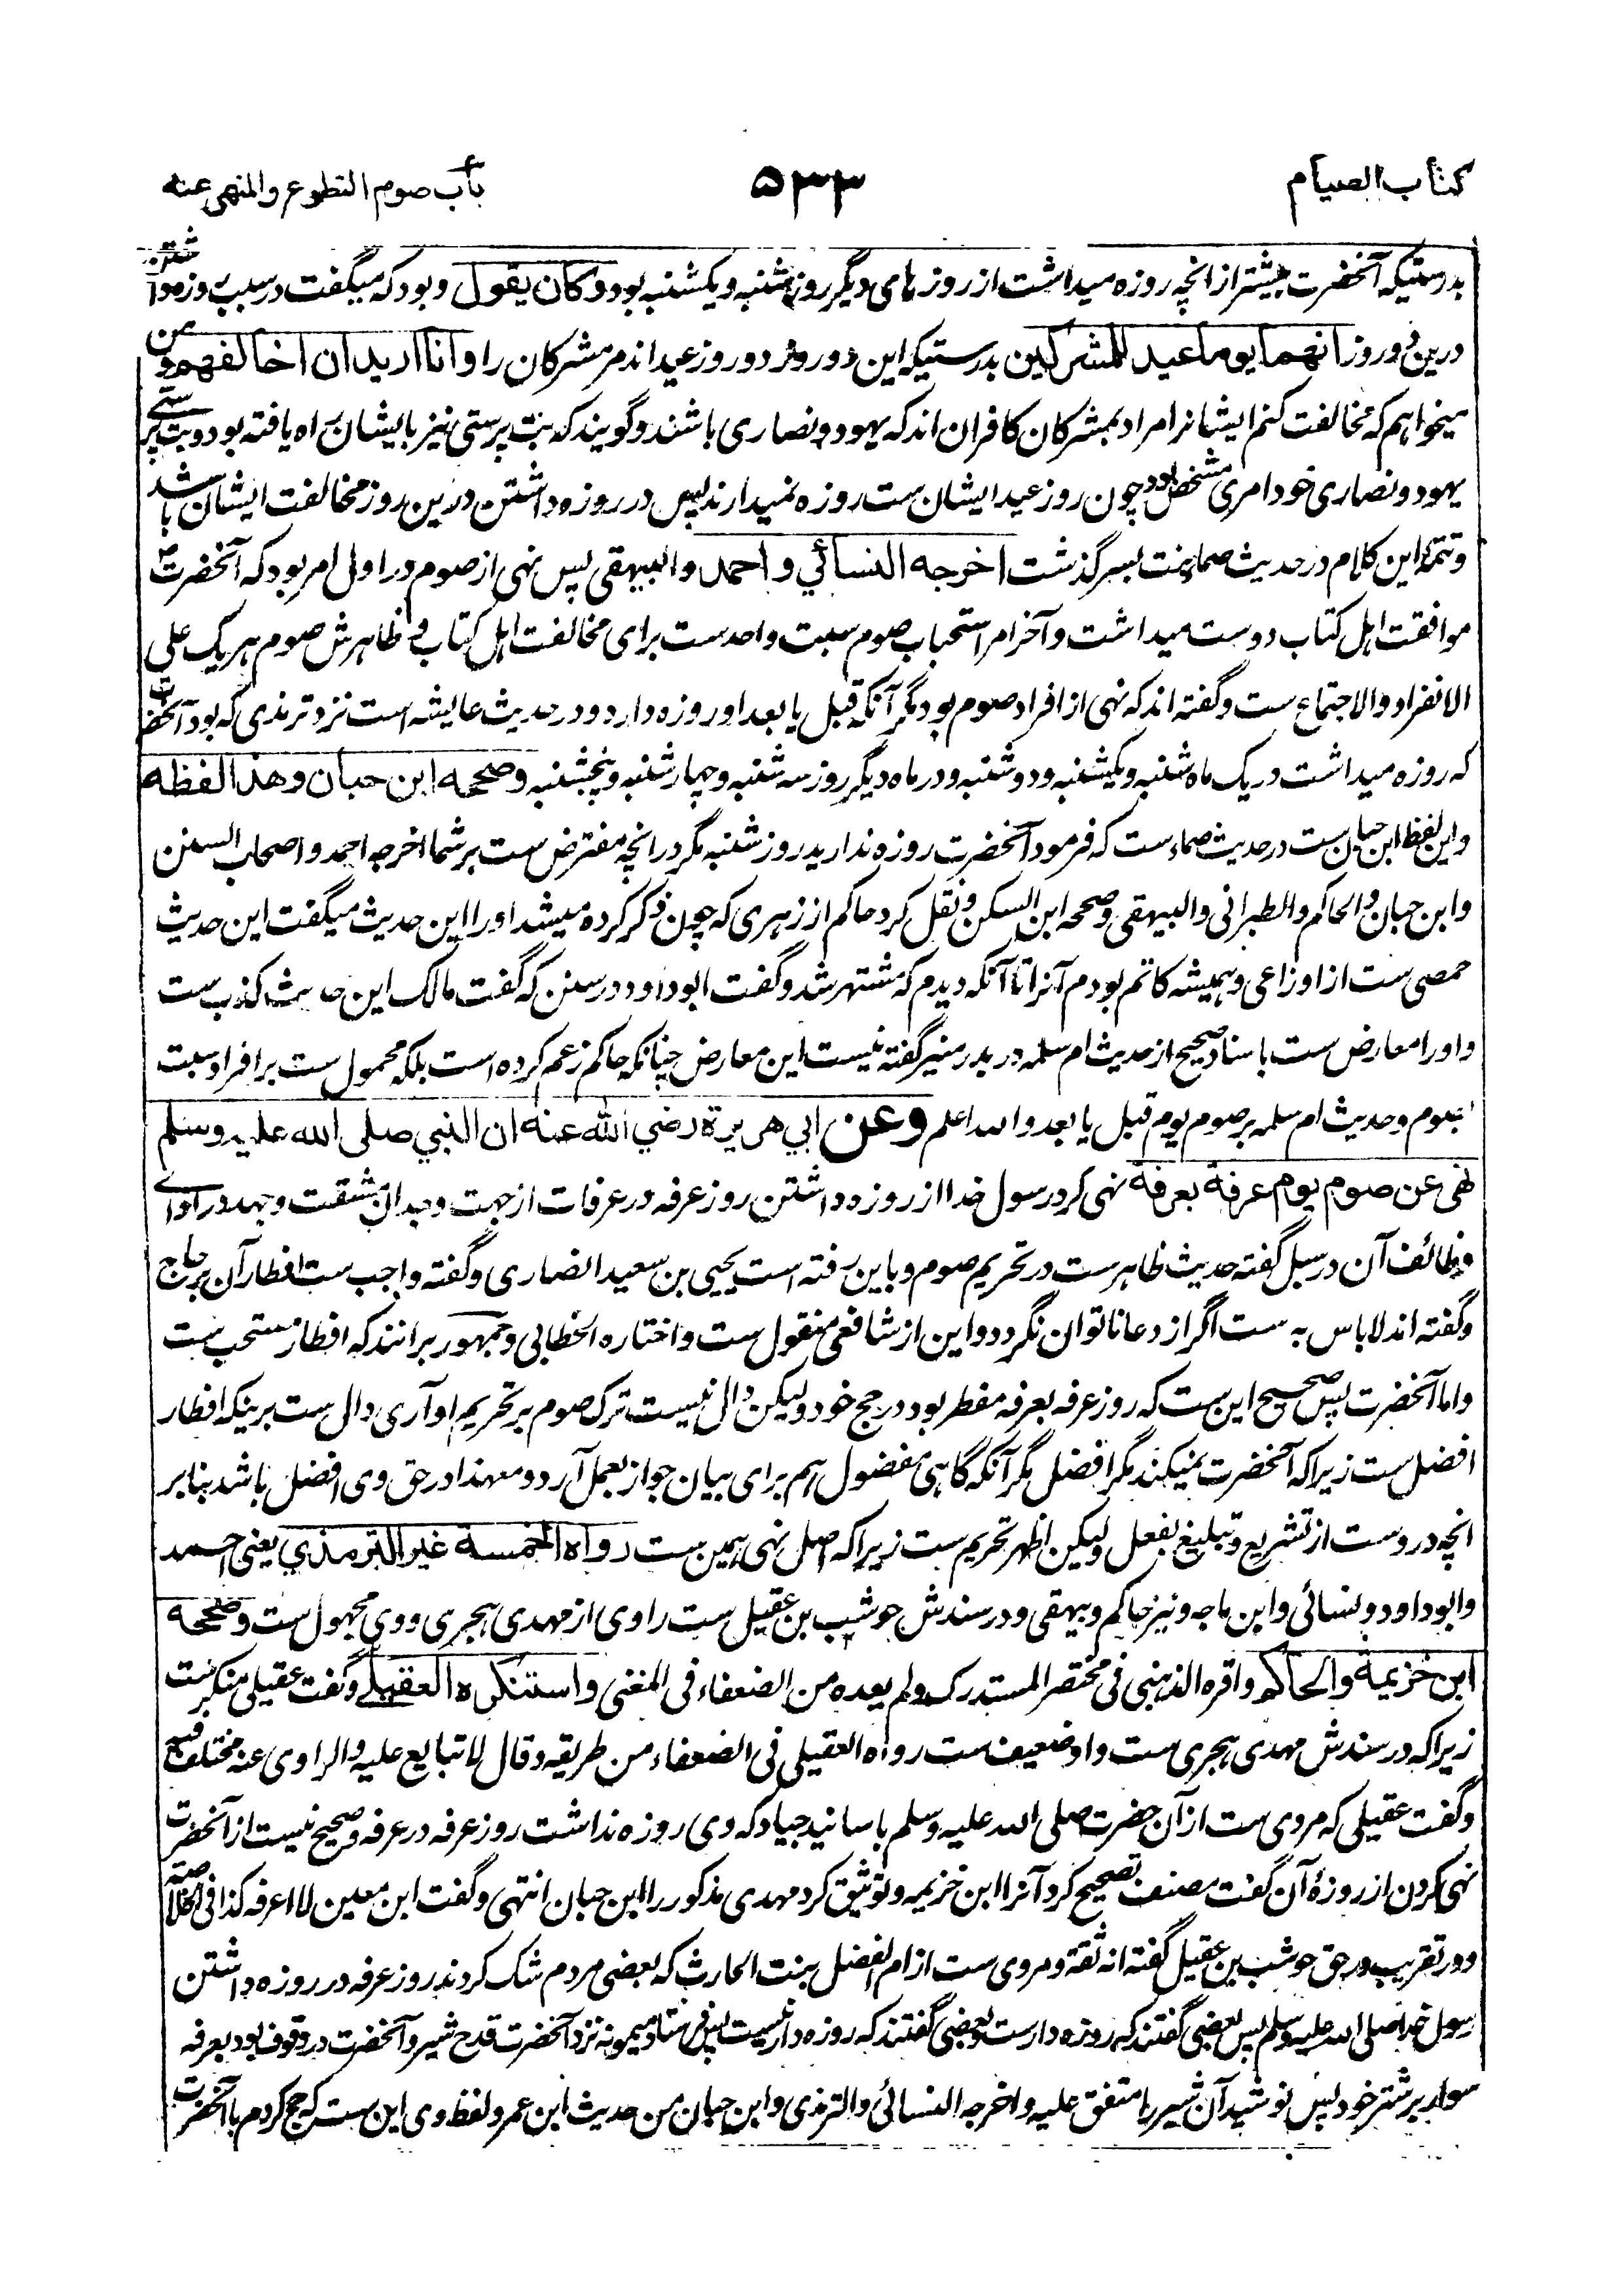 کتاب الصیام
۵۳۳
باب صوم التطوع والمنهی عنه
بدرستیکه آنحضرت بیشتر از انچه روزه میداشت از روزهای دیگر روز شنبه و یکشنبه بود وکان یقول و بود که میگفت در سبب روزه داشتن
درین دو روز انهما یوما عید للمشرکین بدرستیکه این دو روز دو روز عید اند مر مشرکان را وانا ارید ان اخالفهم و من
میخواهم که مخالفت کنم ایشانرا مراد بمشرکان کافران اند که یهود و نصاری باشند و گویند که بت پرستی نیز بایشان راه یافته بود و بت پرستی
یهود و نصاری خود امری مشخص بود چون روز عید ایشان ست روزه نمیدارند پس در روزه داشتن درین روز مخالفت ایشان باشد
و تتمهٔ این کلام در حدیث صماء بنت بسر گذشت اخرجه النسائي و احمد والبیهقی پس نهی از صوم در اول امر بود که آنحضرت
موافقت اهل کتاب دوست میداشت و آخر امر استحباب صوم سبت و احد ست برای مخالفت اهل کتاب و ظاهرش صوم هر یک علی
الانفراد والاجتماع ست و گفته اند که نهی از افراد صوم بود مگر آنکه قبل یا بعد او روزه دارد و در حدیث عایشه است نزد ترمذی که بود آنحضرت
که روزه میداشت در یک ماه شنبه و یکشنبه و دوشنبه و در ماه دیگر روز سه شنبه و چهارشنبه و پنجشنبه وصححه ابن حبان وهذا لفظه
و این لفظ ابن حبان ست در حدیث صماء ست که فرمود آنحضرت روزه ندارید روز شنبه مگر در انچه مفترض ست بر شما اخرجه احمد و اصحاب السنن
و ابن حبان والحاکم والطبرانی والبیهقی وصححه ابن السکن و نقل کرد حاکم از زهری که چون ذکر کرده میشد او را این حدیث میگفت این حدیث
حمصی ست از اوزاعی و همیشه کاتم بودم آنرا تا آنکه دیدم که مشتهر شد و گفت ابوداود در سنن که گفت مالک این حدیث کذب ست
و او را معارض ست باسناد صحیح از حدیث ام سلمه در بدر منیر گفته نیست این معارض چنانکه حاکم زعم کرده است بلکه محمول ست بر افراد سبت
بصوم و حدیث ام سلمه بر صوم یوم قبل یا بعد والله اعلم وعن ابي هریرة رضي الله عنه ان النبي صلی الله علیه وسلم
نهی عن صوم یوم عرفة بعرفة نهی کرد رسول خدا از روزه داشتن روز عرفه در عرفات از جهت وجدان مشقت و جهد در ادای
وظائف آن در سبل گفته حدیث ظاهرست در تحریم صوم و باین رفته است یحیی بن سعید انصاری و گفته واجب ست افطار آن بر حاج
و گفته اند لا باس به ست اگر از دعا ناتوان نگردد و این از شافعی منقول ست و اختاره الخطابی و جمهور برانند که افطار مستحب ست
و اما آنحضرت پس صحیح این ست که روز عرفه بعرفه مفطر بود در حج خود ولیکن دال نیست ترک صوم بر تحریم او آری دال ست برینکه افطار
افضل ست زیراکه آنحضرت نمیکند مگر افضل مگر آنکه گاهی مفضول هم برای بیان جواز بعمل آرد و معهذا در حق وی افضل باشد بنا بر
انچه در وست از تشریع و تبلیغ بفعل ولیکن اظهر تحریم ست زیراکه اصل نهی همین ست رواه الخمسة غیر الترمذي یعنی احمد
و ابوداود و نسائی و ابن ماجه و نیز حاکم و بیهقی و در سندش حوشب بن عقیل ست راوی از مهدی هجری و وی مجهول ست وصححه
ابن خزیمة والحاکم واقره الذهبی فی مختصر المستدرک ولم یعده من الضعفاء فی المغنی واستنکره العقیلي و گفت عقیلی منکرست
زیراکه در سندش مهدی هجری ست و او ضعیف ست رواه العقیلی فی الضعفاء من طریقه وقال لا یتابع علیه والراوی عنه مختلف فیه
و گفت عقیلی که مروی ست از آن حضرت صلی الله علیه وسلم باسانید جیاد که وی روزه نداشت روز عرفه در عرفه و صحیح نیست از آنحضرت
نهی کردن از روزهٔ آن گفت مصنف تصحیح کرد آنرا ابن خزیمه و توثیق کرد مهدی مذکور را ابن حبان انتهی و گفت ابن معین لا اعرفه کذا فی الخلاصة
و در تقریب در حق حوشب بن عقیل گفته انه ثقة و مروی ست از ام الفضل بنت الحارث که بعضی مردم شک کردند روز عرفه در روزه داشتن
رسول خدا صلی الله علیه وسلم پس بعضی گفتند که روزه دارست و بعضی گفتند که روزه دار نیست پس فرستاد میمونه نزد آنحضرت قدح شیر و آنحضرت در وقوف بود بعرفه
سوار بر شتر خود پس نوشید آن شیر را متفق علیه و اخرجه النسائی والترمذی وابن حبان من حدیث ابن عمر و لفظ وی این ست که حج کردم با آنحضرت